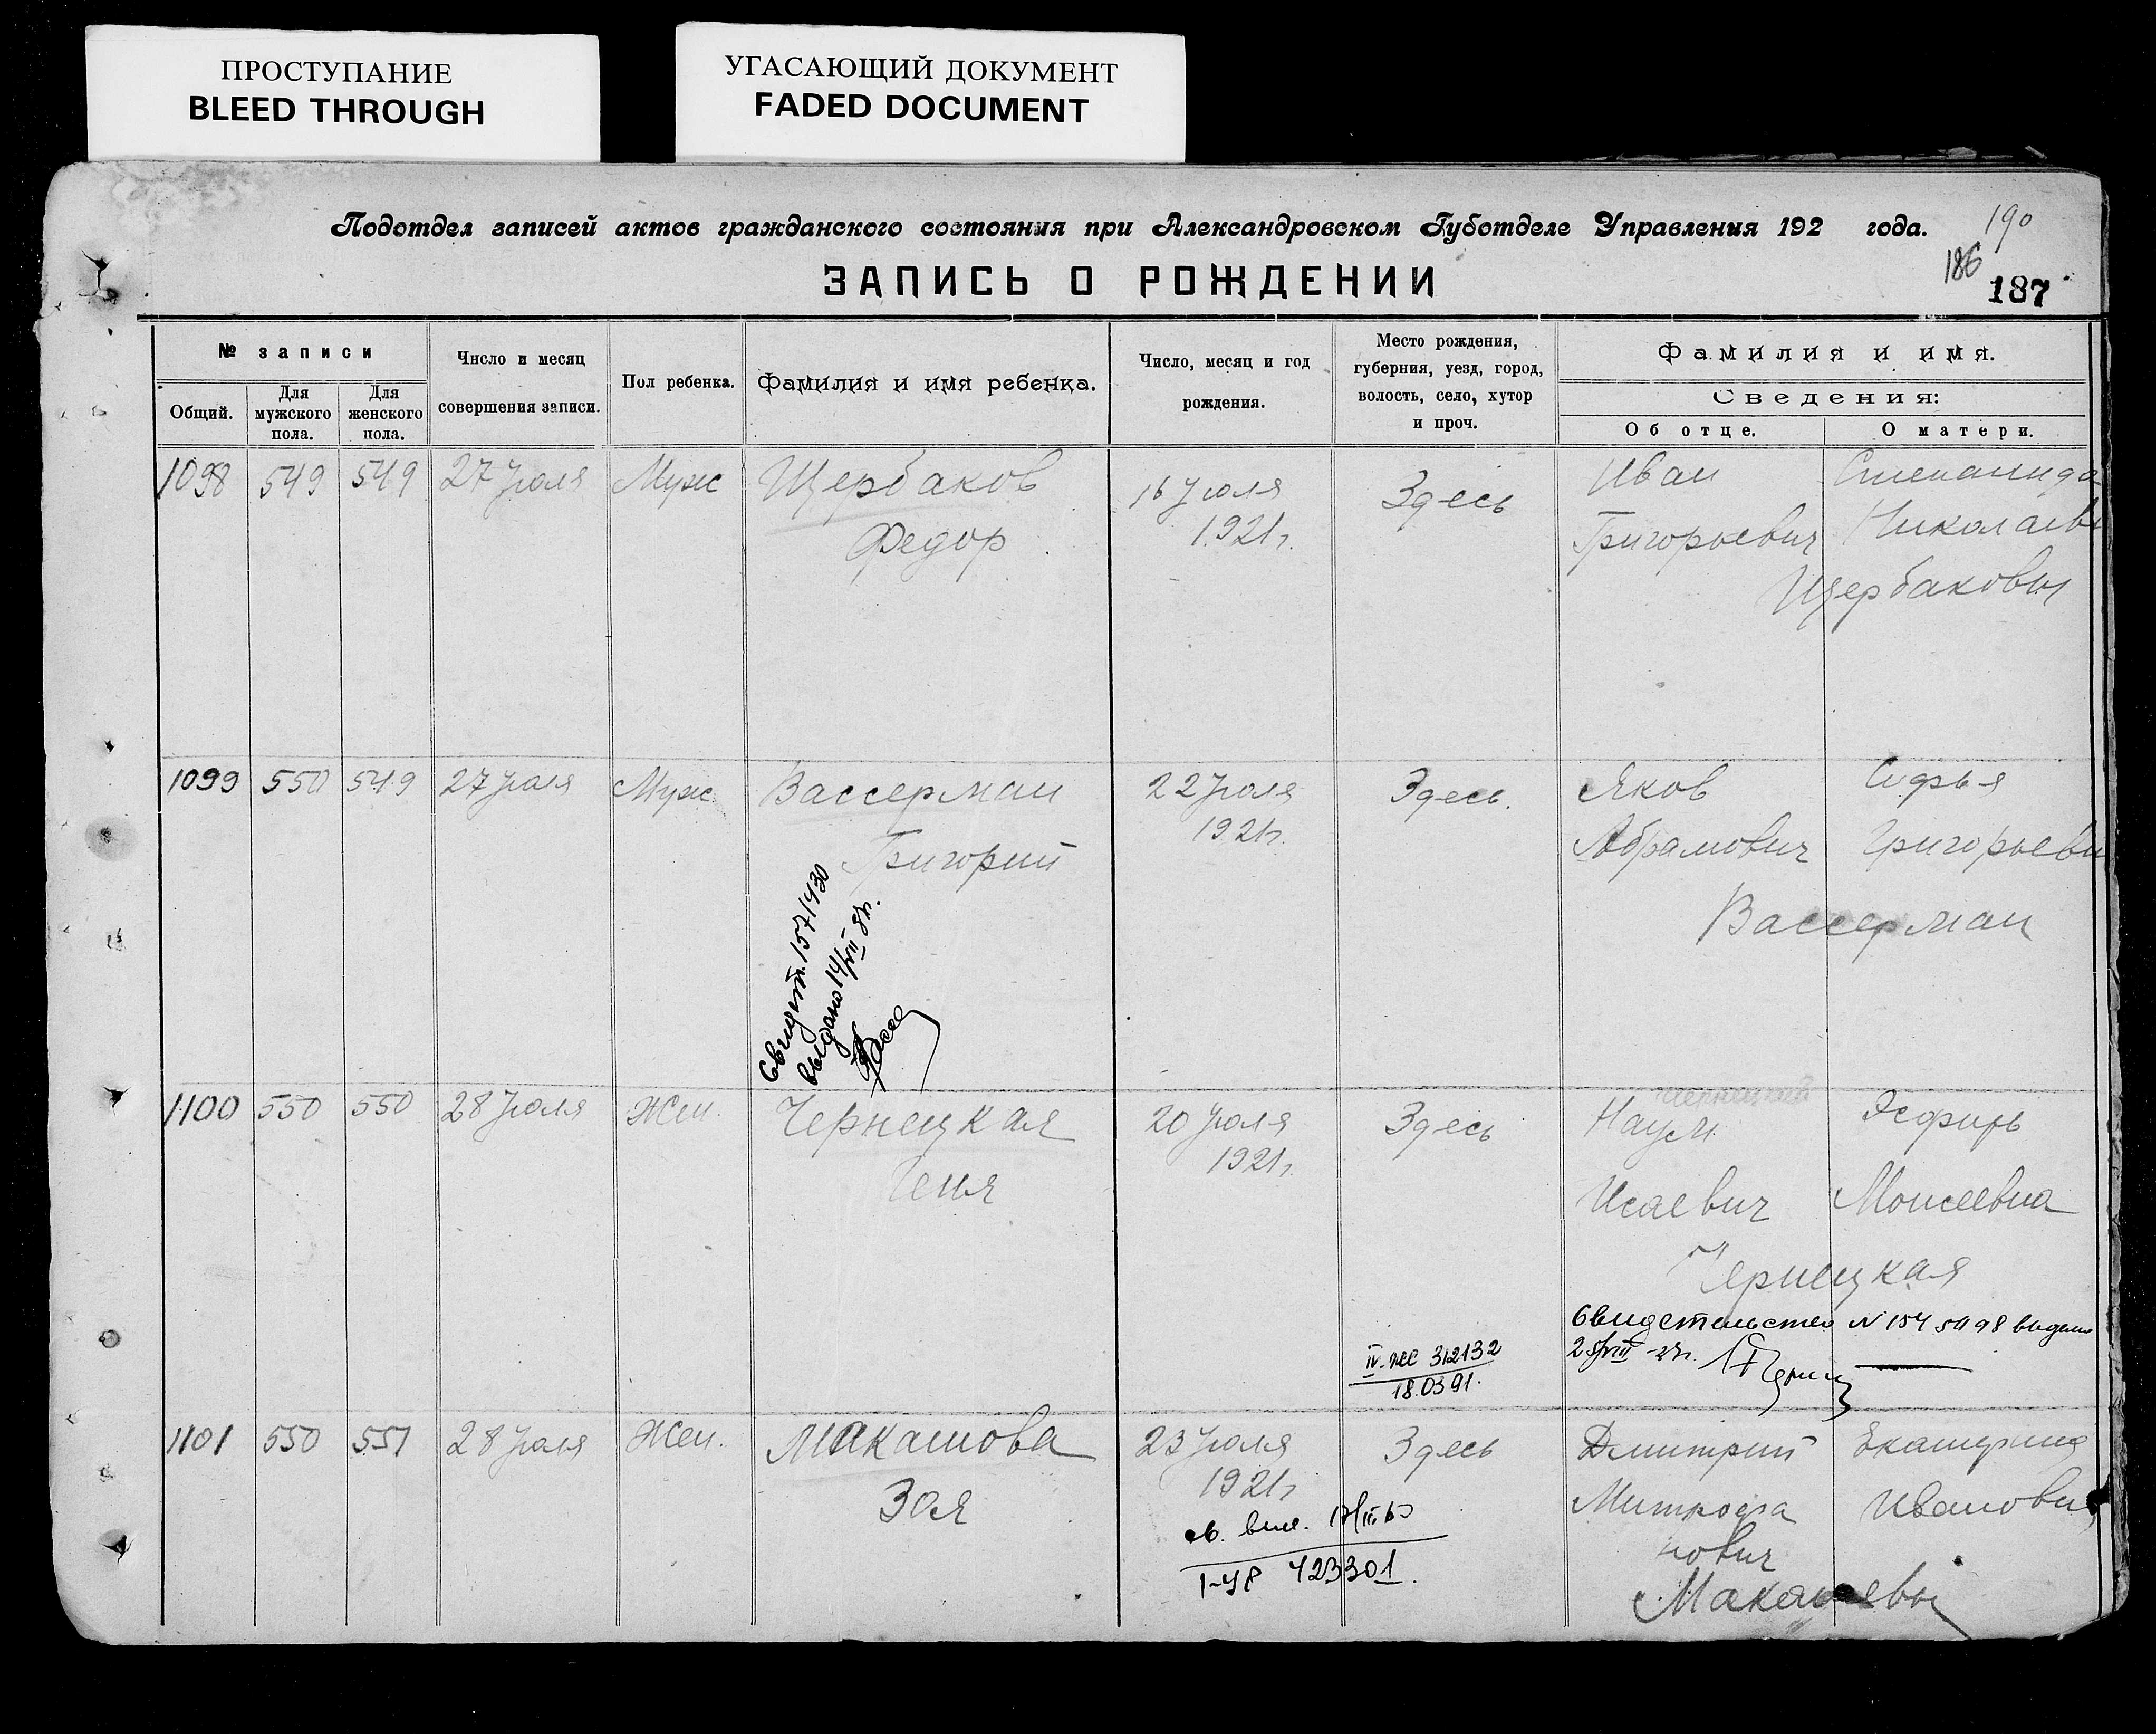 ПРОСТУПАНИЕ
BLEED THROUGH
УГАСАЮЩИЙ ДОКУМЕНТ
FADED DOCUMENT
Подотдел записей актов гражданского состояния при Александровском Губотделе Управления 192 года.
190
186
187
ЗАПИСЬ О РОЖДЕНИИ
№ записи
Общий.
Для мужского пола.
Для женского пола.
Число и месяц
совершения записи.
Пол ребенка.
Фамилия и имя ребенка.
Число, месяц и год
рождения.
Место рождения,
губерния, уезд, город,
волость, село, хутор
и проч.
Фамилия и имя.
Сведения:
Об отце.
О матери.
1098 549 549 27 Июля Муж Щербаков
Федор
16 Июля
1921г.
Здесь
Иван
Григорьевич
Степанида
Николаев
Щербаковы
1099 550 549 27 Июля Муж. Вассерман
Григорий
Свидет. 1571430
выдано 14/VII
22 Июля
1921г.
Здесь.
Яков
Абрамович
Софья
Григорьевн
Вассерман
1100 550 550 28 Июля Жен. Чернецкая
Геня
20 Июля
1921г.
Здесь
IV-ЖС 312132
18.03.91.
Чернецкий
Наум
Исаевич
Эсфирь
Моисеевна
Чернецкая
Свидетельство N 154 5498 выдано
1101 550 551 28 Июля Жен. Макашова
Зоя
23 Июля
1921г
423301.
Здесь
Дмитрий
Митрофа
нович
Екатерина
Ивановн